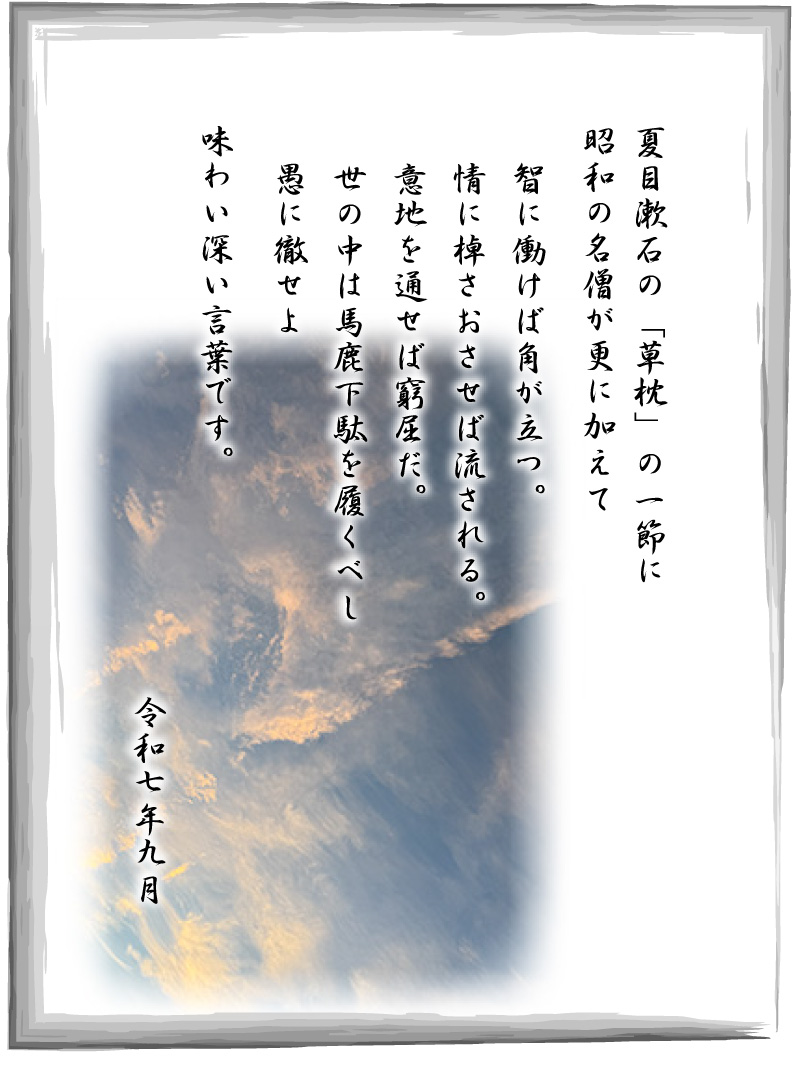 夏目漱石の「草枕」の一節に
昭和の名僧が更に加えて
智に働けば角が立つ。
情に棹さおさせば流される。
意地を通せば窮屈だ。
世の中は馬鹿下駄を履くべし
愚に徹せよ
味わい深い言葉です。
令和七年九月